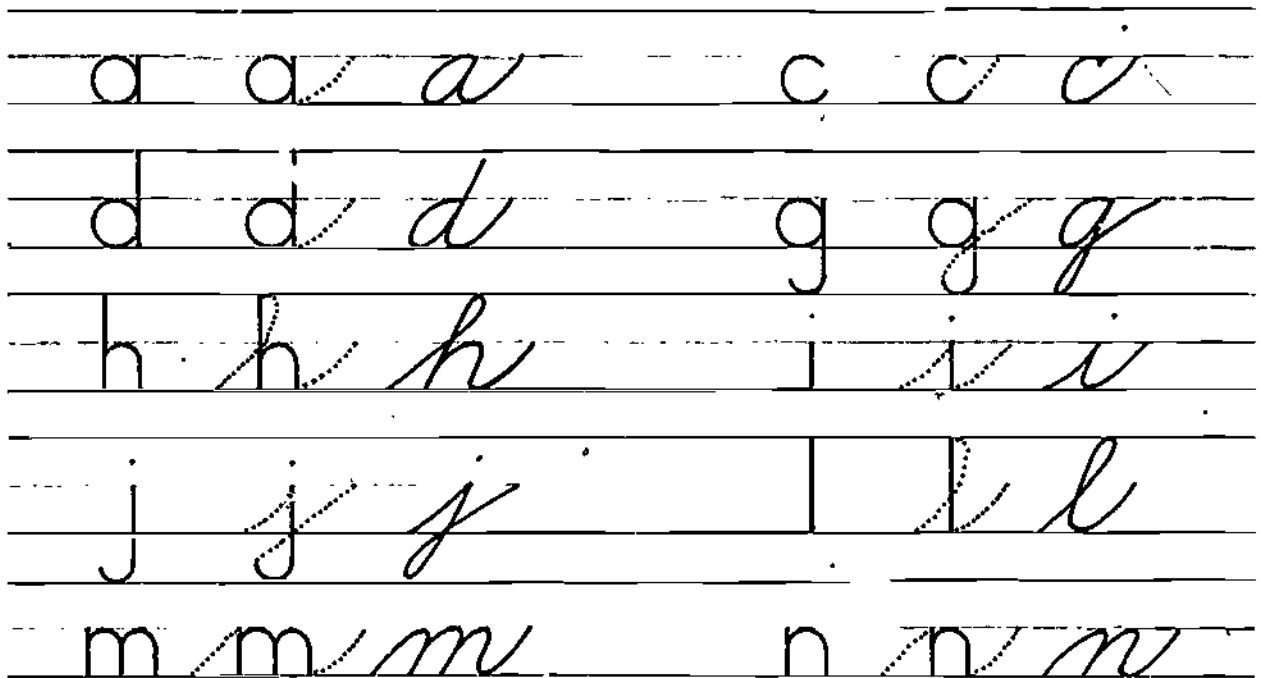 a a a c c c
d d d g g g
h h h i i i
j j j l l l
m m m n n n